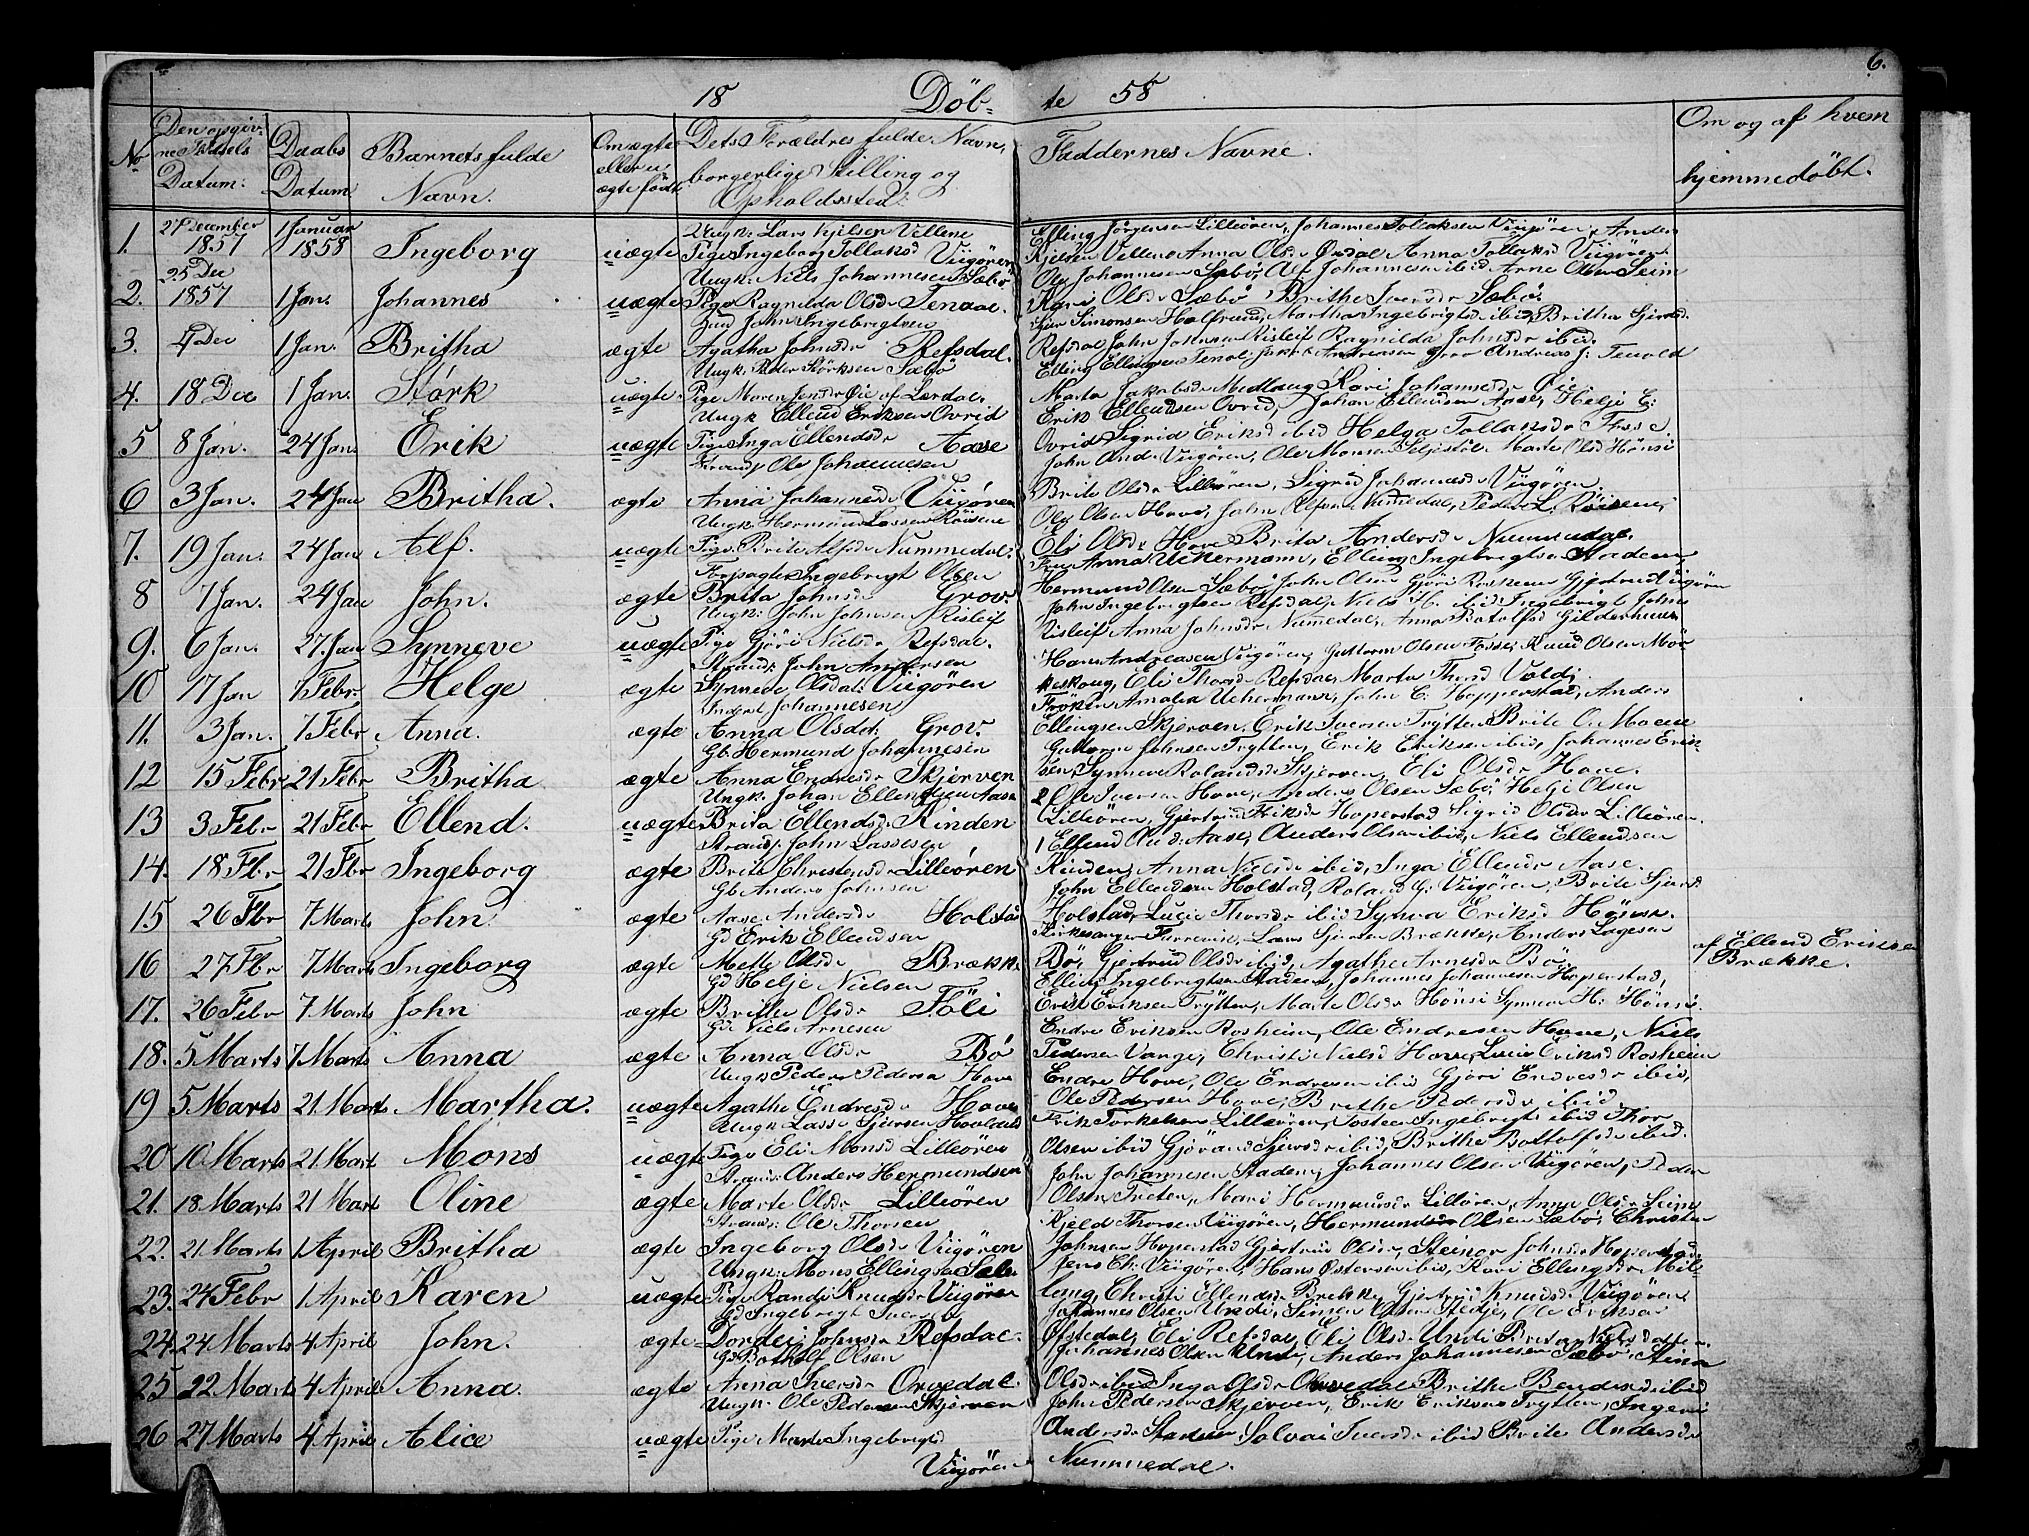 6.
18 Döb- te 58
No
Den opgiv-
ne Fødsels
Datum:
Daabs
Datum
Barnets fulde
Navn.
Om ægte
eller u-
ægte født
Dets Forældres fulde Navn,
borgerlige Stilling og
Opholdssted:
Faddernes Navne.
Om og af hvem
hjemmedöbt.
1. 27 December 1857 1 Januar 1858 Ingeborg uægte Ungk: Lars Kjelsen Vellene
Pige Ingeborg Tollaksd Viigören
Effing Jörgensen Lilleören, Johannes Tollaksen Viigören, Anders
Kjelsen Vellene Anna Olsdr Anna Tollaksd Viigören
2. 25 Dec 1857 1 Jan. Johannes uægte Ungk: Niels Johannesen Sæbö
Pige Ragnilda Olsdr Tenaal.
Ole Johannesen Sæbö, Alf Johannesen ibid Arne Olsen Seim
Kari Olsdr Sæbö, Brithe Iversdr Sæbö.
3. 4 Dec 1 Jan. Britha ægte John Ingebrigtsen
Agatha Johnsdr Refsdal.
Simonsen Halfrund, Martha Ingebrigtsd ibid, Britha
Refsdal John Johnsen Risleif Ragnilda Johnsdr ibid.
4. 18 Dec 1 Jan. Störk uægte Ungk: Peder Störksen Sæbö
Pige Maren Jensdr Öie af Lærdal.
Elling Ellingsen Tenol Jakob Andreasen Grov Andreas J: Tenold
Marta Jakobsdr Midlang Kari Johannesdr Öie
5 8 Jan. 24 Jan. Erik uægte Ungk Ellend Eriksen Ovrid
Pige Inga Ellendsdr Aase
Erik Ellendsen Ovrid, Johan Ellendsen Aase, Helje E:
Ovrid Sigrid Eriksd ibid Helga Tollaksdr Fosse.
6 3 Jan. 24 Jan Britha. ægte Strands: Ole Johannesen
Anna Johannesdr Viigören
John And: Viigören, Ole Monsen Seljestöl Marte Olsd Hönsi
Brite Olsdr Lilleören, Sigrid Johannesdr Viigören.
7. 19 Jan. 24 Jan Alf. uægte Ungk: Hermund Lassesen Röisene
Pige Brite Alfsdr Nummedal.
Ole Olsen Hove, John Alfsen Numedal, Peder L. Röisene,
Eli Olsdr Hove Brita Andersdr Nummedal.
8 7 Jan. 24 Jan John. ægte Forpagter Ingebrigt Olsen
Brita Johnsdr Grov
Fru Anna Uckermann, Elling Ingebrigtsen Stadem,
Hermund Olsen Sæbö, John Olsen Gjöri Rosheim Gjertrud Viigören
9. 6 Jan. 27. Jan Synneve uægte Ungk: John Johnsen Risleif
Pige Gjöri Nielsdr Refsdal.
John Ingebrigtsen Refsdal, Niels H. ibid Ingebrigt Johns
Risleif Anna Johnsdr Numedal, Anna Botolfsd Gilderhuus
10 17 Jan 7 Febr. Helge ægte Strands: John Andersen
Synneve Olsdr: Viigören
Hans Andreasen Viigören, Guttorm Olsen Fosse, Knud Olsen Mör-
keskoug, Eli Thorsdr Refsdal, Marta Thorsd Voldi
11. 3 Jan. 7 Febr Anna. ægte Inderst Johannesen
Anna Olsdr: Grov.
Fröken Amalia Uchermann, John E: Hopperstad, Anders
Ellingsen Skjerven, Erik Iversen Trytten Brite O. Moene
12 15 Febr 21 Febr Britha ægte Gb. Hermund Johannesen
Anna Endresdr Skjerven
Guttorm Johnsen Trytten, Erik Eriksen ibid, Johannes Erik-
sen, Synneve Rolandsdr Skjerven, Eli Olsdr Hove.
13 3 Febr 21 Febr Ellend. uægte Ungk: Johan Ellendsen Aase
Brita Ellendsdr Rinden
2 Ole Iversen Hove, Anders Olsen Sæbö, Helje Olsen
Lilleören, Gjertrud Eriksdr Hoperstad Sigrid Olsdr Lilleören.
14. 18 Fbr 21 Fbr Ingeborg ægte Strands: John Lassesen
Brite Christensdr Lilleören
1 Ellend And: Aase, Anders Olsen ibid, Niels Ellendsen
Rinden, Anna Nielsdr ibid, Inga Ellendsdr Aase.
15. 26 Fbr 7 Marts John. ægte Gb. Anders Johnsen
Aase Andersdr Holstad
John Ellendsen Holstad, Roland G: Viigören, Brite
Holstad, Lucie Thorsdr ibid Synva Eriksd Hönsi.
16 27 Fbr 7 Marts Ingeborg ægte Gd Erik Ellendsen
Mette Olsdr Brække
Kirkesanger Turrevik, Lars Sjursen Brække, Anders Lagesen
Bö, Gjertrud Olsdr ibid, Agathe Arnesdr Bö.
af Ellend Eriksen
Brække.
17. 26 Febr 7. Marts John ægte Gd Helje Nielsen
Brithe Olsdr Föli
Elling Ingebrigtsen Stadem, Johannes Johannesen Hoperstad,
Erik Eriksen Trytten, Marte Olsdr Hönsi Synneva H: Hönsi.
18. 5 Marts 7 Marts Anna ægte Gd Niels Arnesen
Anna Olsdr Bö
Endre Eriksen Rosheim, Ole Endresen Hove, Niels
Pedersen Vange, Christi Nielsd Hove, Lucie Eriksd Rosheim
19 5. Marts 21 Marts Martha. uægte Ungk: Peder Pedersen Hove
Agathe Endresdr Hove
Endre Hove, Ole Endresen ibid Gjöri Endresdr ibid,
Ole Pedersen Hove, Brithe Pedersdr ibid.
20 10 Marts 21. Marts Mons uægte Ungk Lasse Sjursen
Pige Eli Monsd Lilleören
Erik Torkelsen Lilleören, Tosten Ingebrigts ibid Thor
Olsen ibid Gjörand Sjursdr ibid, Brithe Bottolfsdr ibid.
21. 18 Marts 21 Marts Oline ægte Strands: Anders Hermundsen
Marte Olsdr Lilleören
John Johannesen Stadem, Johannes Olsen Viigören, Peder
Olsen Treten, Mari Hermundsdr Lilleören, Anna Olsdr Seim
22. 21. Marts 1 April Britha ægte Strands: Ole Thorsen
Ingeborg Olsdr Viigören
Kjeld Thorsen Viigören, Hermund Olsen Sæbö, Christen
Johnsen Hoperstad Gjertrud Olsdr, Steinor Johnsdr Hoperstad
23. 24 Febr 1 April Karen uægte Ungk: Mons Ellingsen Sæle
Pige Randi Knudsdr Viigören
Jens Ch: Viigören, Hans Östensen ibid, Kari Ellingsdr Mid-
lang, Christi Ellendsdr Brekke, Gjertrud Knudsdr Viigören
24. 24 Marts 4 April John. ægte Gd Ingebrigt Iversen
Dordei Johnsdr Refsdal.
Johannes Olsen Undi, Simen Olsen Stedje, Ole Eriksen
Öfstedal, Eli Refsdal, Eli Olsdr Undi Brita Nielsdatter.
25 22 Marts 4 April Anna. ægte Gd Bottolf Olsen
Anna Iversdr Orvedal.
Johannes Olsen Undi, Anders Johannesen Sæbö, Stina
Olsdr ibid Inga Olsdr Orvedal Brithe Bendiksd ibid
26 27 Marts 4 April Alice uægte Ungk: Ole Pedersen Skjerven
Pige Marte Ingebrigtsd
Viigören
John Pedersen Skjerven, Erik Eriksen Trytten, Ingeri
Andersdr Stadem, Solvai Iversdr ibid Brite Andersdr
Nummedal.